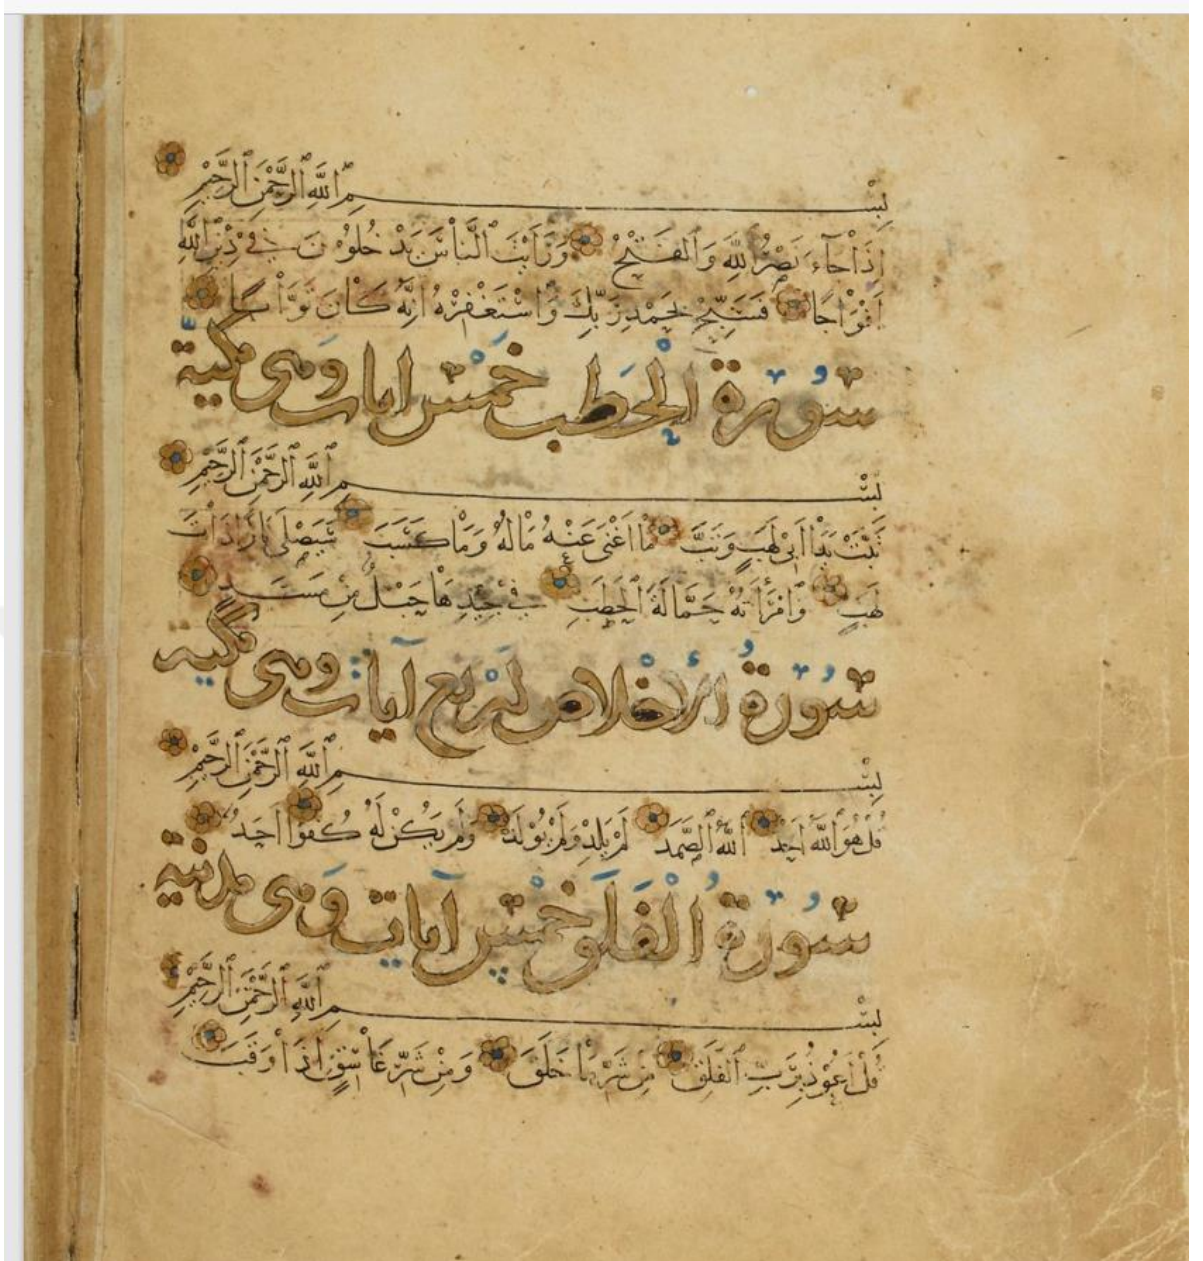 بِسْمِ اللَّهِ الرَّحْمَٰنِ الرَّحِيمِ
إِذَا جَاءَ نَصْرُ اللَّهِ وَالْفَتْحُ وَرَأَيْتَ النَّاسَ يَدْخُلُونَ فِي دِينِ اللَّهِ
أَفْوَاجًا فَسَبِّحْ بِحَمْدِ رَبِّكَ وَاسْتَغْفِرْهُ إِنَّهُ كَانَ تَوَّابًا
سُورَةُ الْحَطَب خَمْس ايات وَهي مكية
بِسْمِ اللَّهِ الرَّحْمَٰنِ الرَّحِيمِ
تَبَّتْ يَدَا أَبِي لَهَبٍ وَتَبَّ مَا أَغْنَىٰ عَنْهُ مَالُهُ وَمَا كَسَبَ سَيَصْلَىٰ نَارًا ذَاتَ
لَهَبٍ وَامْرَأَتُهُ حَمَّالَةَ الْحَطَبِ فِي جِيدِهَا حَبْلٌ مِنْ مَسَدٍ
سُورَةُ الأخْلاص اربع آيات وهي مكية
بِسْمِ اللَّهِ الرَّحْمَٰنِ الرَّحِيمِ
قُلْ هُوَ اللَّهُ أَحَدٌ اللَّهُ الصَّمَدُ لَمْ يَلِدْ وَلَمْ يُولَدْ وَلَمْ يَكُنْ لَهُ كُفُوًا أَحَدٌ
سُورَةُ الْفَلَق خَمْس آيات وَهي مدنية
بِسْمِ اللَّهِ الرَّحْمَٰنِ الرَّحِيمِ
قُلْ أَعُوذُ بِرَبِّ الْفَلَقِ مِنْ شَرِّ مَا خَلَقَ وَمِنْ شَرِّ غَاسِقٍ إِذَا وَقَبَ